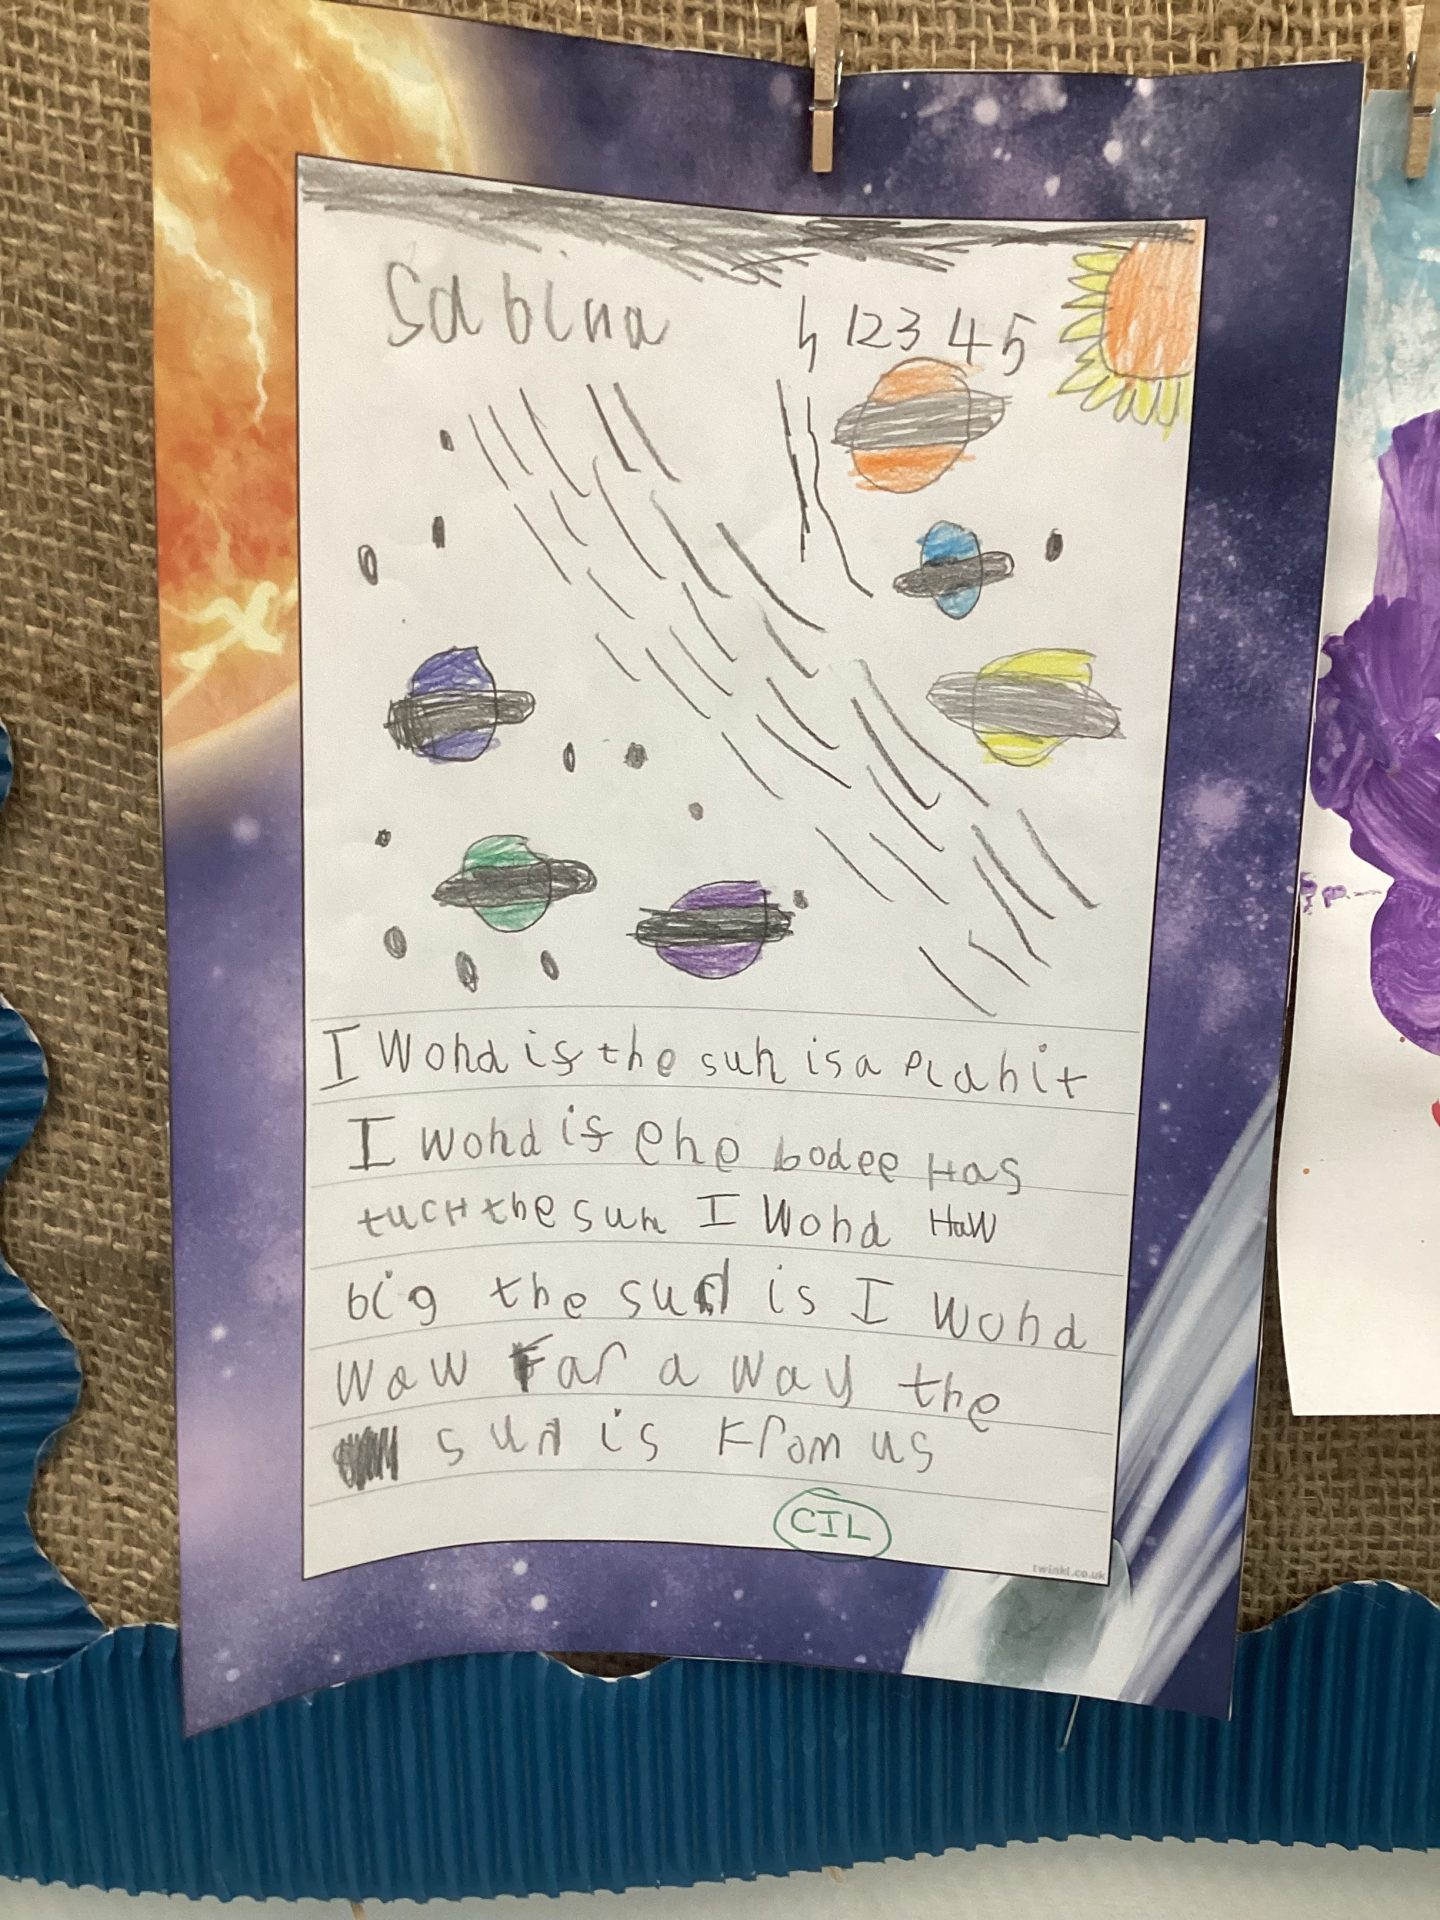 Sabina
5 12345
I Wond is the sun is a Planit
I wond is ene bodee Has
tucH the sun I Wond HaW
big the sun is I wond
WoW Far a way the
sun is From us
CIL
twinkl.co.uk